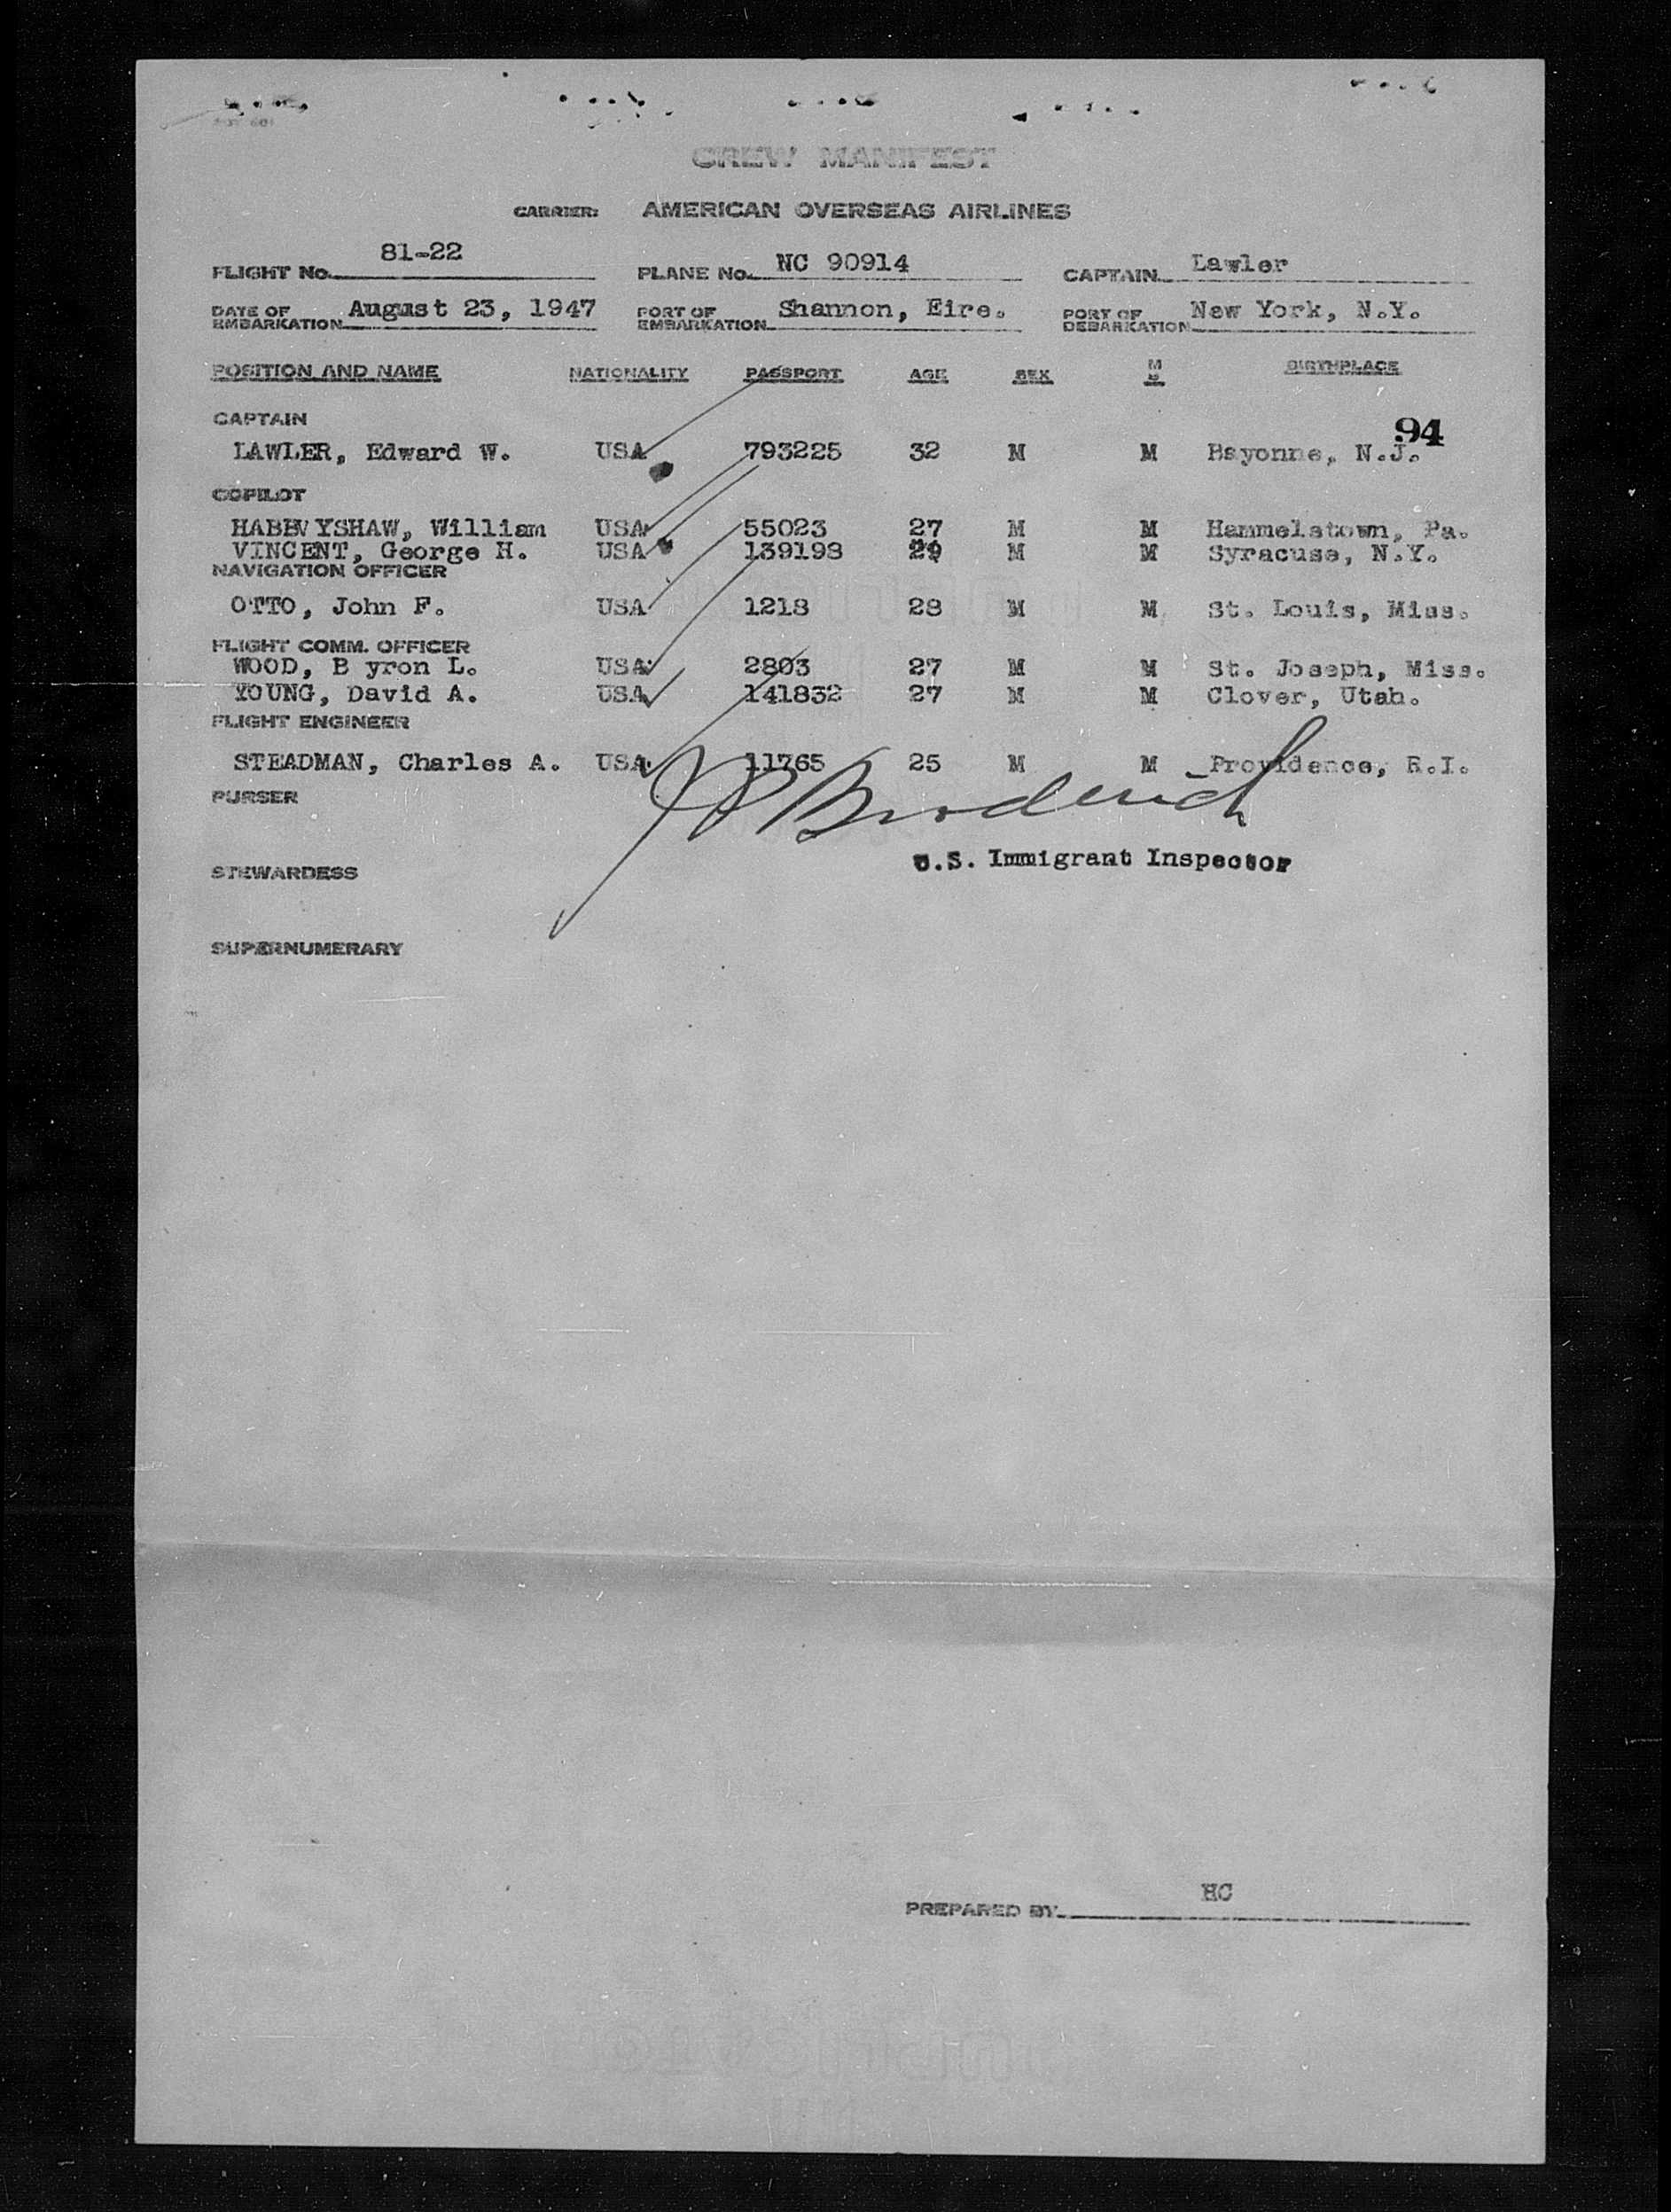 CREW MANIFEST
CARRIER: AMERICAN OVERSEAS AIRLINES
FLIGHT No. 81-22 PLANE No. NC 90914 CAPTAIN Lawler
DATE OF EMBARKATION August 23, 1947 PORT OF EMBARKATION Shannon, Eire. PORT OF DEBARKATION New York, N.Y.
POSITION AND NAME NATIONALITY PASSPORT AGE SEX M S BIRTHPLACE
CAPTAIN
94
LAWLER, Edward W. USA 793225 32 M M Bayonne, N.J.
COPILOT
William USA 55023 27 M M Hammelstown, Pa.
VINCENT, George H. USA 139198 M M Syracuse, N.Y.
NAVIGATION OFFICER
OTTO, John F. USA 1218 28 M M St. Louis, Miss.
FLIGHT COMM. OFFICER
WOOD, B yron L. USA 2803 27 M M St. Joseph, Miss.
YOUNG, David A. USA 141832 27 M M Clover, Utah.
FLIGHT ENGINEER
STEADMAN, Charles A. USA 11765 25 M M Providence, R.I.
PURSER
Broderick
U.S. Immigrant Inspector
STEWARDESS
SUPERNUMERARY
HC
PREPARED BY